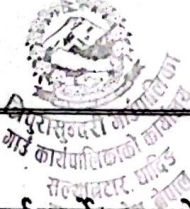 त्रिपुरासुन्दरी गाउँपालिका
गाउँ कार्यपालिकाको कार्यालय
सल्यानटार, धादिङ
नेपाल